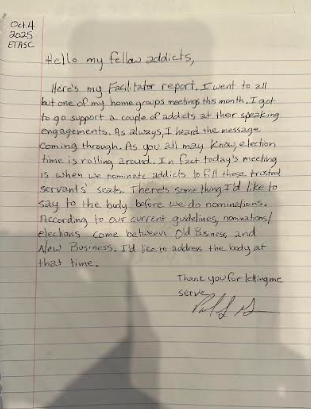 Oct. 4
2025
ETASC
Hello my fellow addicts,
Here's my Facilitator report. I went to all
but one of my home groups meetings this month. I got
to go support a couple of addicts at their speaking
engagements. As always, I heard the message
coming through. As you all may know, election
time is rolling around. In fact today's meeting
is when we nominate addicts to fill these trusted
servants' seats. There's something I'd like to
say to the body before we do nominations.
According to our current guidelines, nominations/
elections come between Old Business and
New Business. I'd like to address the body at
that time.
Thank you for letting me
serve,